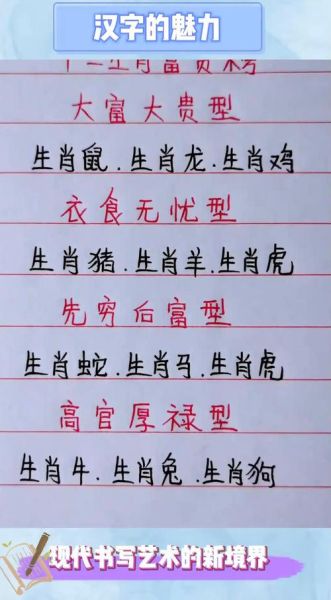 汉字的魅力
十二生肖富贵来考
大富大贵型
生肖鼠.生肖龙.生肖鸡
衣食无忧型
生肖猪.生肖羊.生肖虎
先穷后富型
生肖蛇.生肖马.生肖虎
高官厚禄型
生肖牛.生肖兔.生肖狗
现代书写艺术的新境界